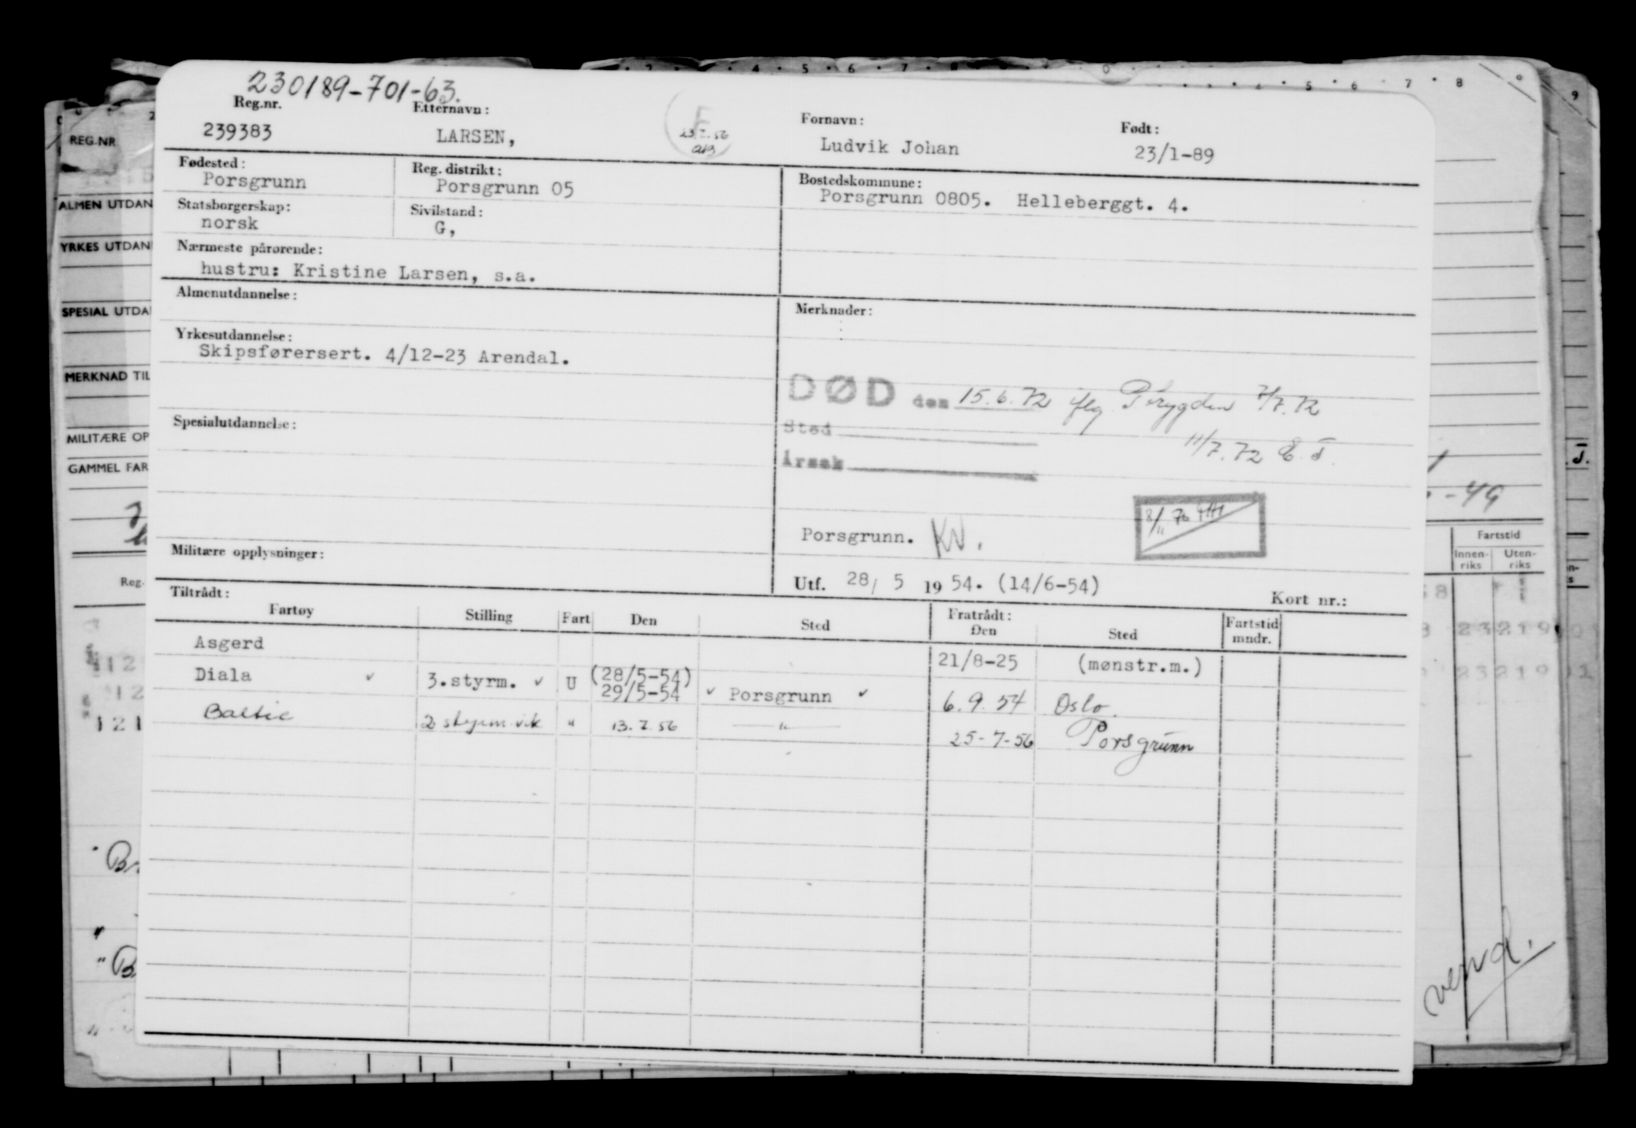 230189-701-63.
Reg.nr. Etternavn: Fornavn: Født:
239383 LARSEN, Ludvik Johan 23/1-89
Fødested: Reg. distrikt: Bostedskommune:
Porsgrunn Porsgrunn 05 Porsgrunn 0805. Helleberggt. 4.
Statsborgerskap: Sivilstand:
norsk G,
Nærmeste pårørende:
hustru: Kristine Larsen, s.a.
Almenutdannelse: Merknader:
Yrkesutdannelse:
Skipsførersert. 4/12-23 Arendal.
DØD den 15.6.72 iflg 7/7.72
Spesialutdannelse: Sted
11/7.72
Årsak
Porsgrunn.
Militære opplysninger:
Utf. 28/ 5 19 54. (14/6-54)
Kort nr.:
Tiltrådt: Fratrådt:
Fartøy Stilling Fart Den Sted Den Sted Fartstid mndr.
Asgerd 21/8-25 (mønstr.m.)
Diala 3.styrm. U (28/5-54) 29/5-54 Porsgrunn 6.9.54 Oslo.
Baltic 2 styrm vik " 13.7.56 " 25-7-56 Porsgrunn
REG.NR
ALMEN UTDAN
YRKES UTDAN
SPESIAL UTDA
MERKNAD TIL
MILITÆRE OP
GAMMEL FAR
Reg.
-49
Fartstid
Innen-riks Uten-riks
vend.